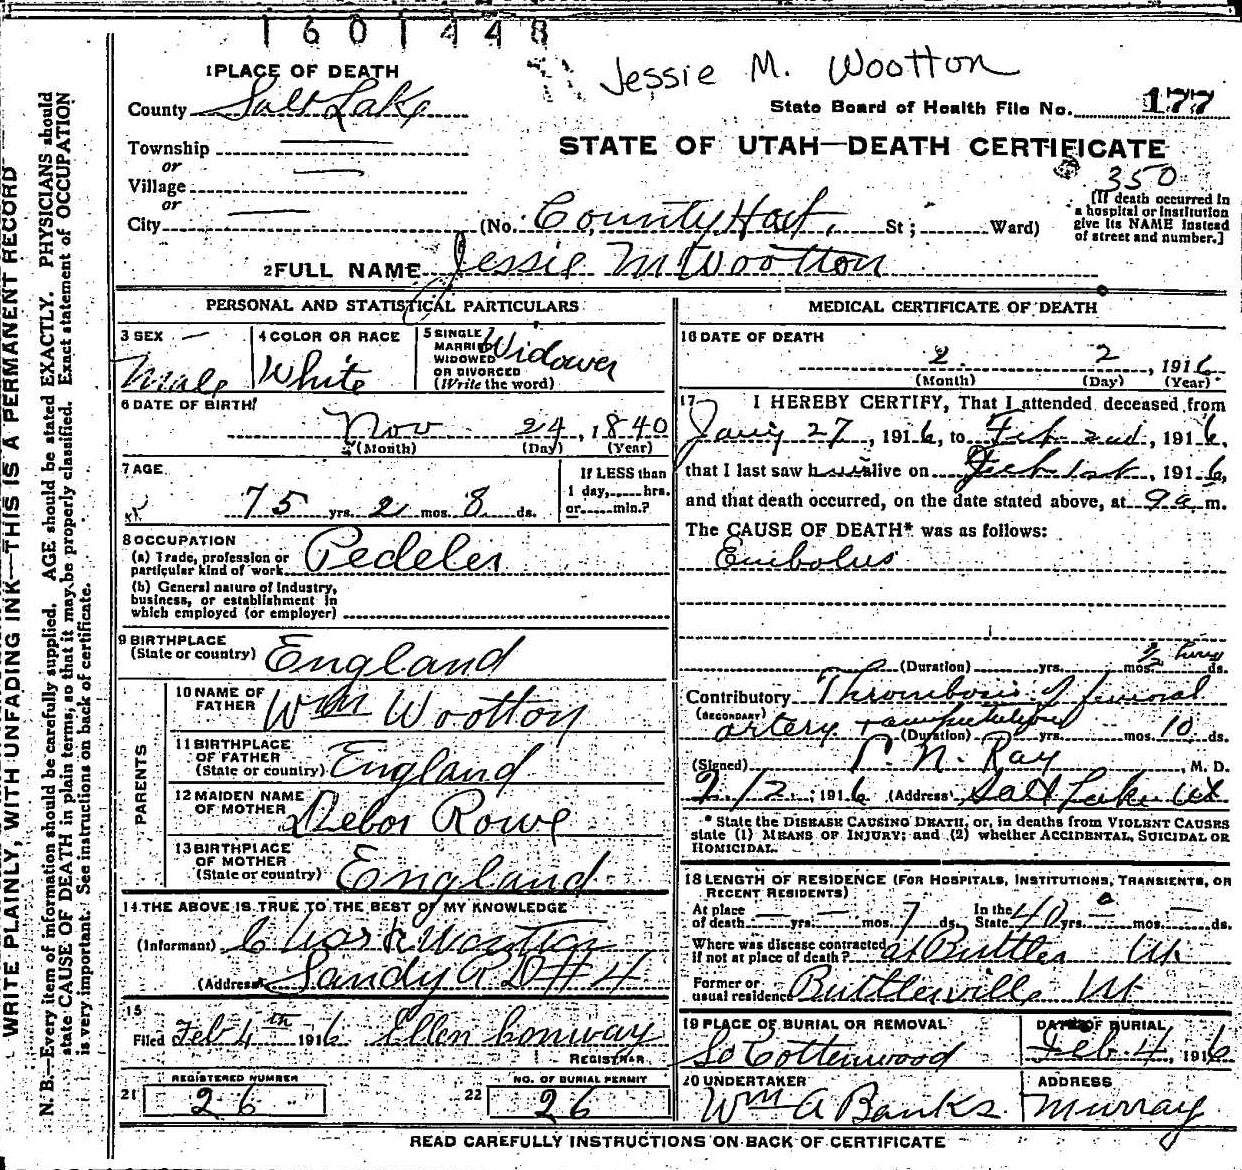 1601448
Jessie M. Wootton
1 PLACE OF DEATH
County Salt Lake
State Board of Health File No. 177
STATE OF UTAH—DEATH CERTIFICATE
Township
or
Village
or
City
350
(No. County Host, St; Ward)
[If death occurred in
a hospital or institution
give its NAME instead
of street and number.]
2 FULL NAME Jessie M Wootton
PERSONAL AND STATISTICAL PARTICULARS
3 SEX Male
4 COLOR OR RACE White
5 SINGLE
MARRIED
WIDOWED
OR DIVORCED
(Write the word)
Widower
6 DATE OF BIRTH
Nov 24, 1840
(Month) (Day) (Year)
7 AGE
75 yrs. 2 mos. 8 ds.
If LESS than
1 day, hrs.
or min.?
8 OCCUPATION
(a) Trade, profession or
particular kind of work Pedeler
(b) General nature of industry,
business, or establishment in
which employed (or employer)
9 BIRTHPLACE
(State or country) England
PARENTS
10 NAME OF
FATHER Wm Wootton
11 BIRTHPLACE
OF FATHER
(State or country) England
12 MAIDEN NAME
OF MOTHER Debor Rowe
13 BIRTHPLACE
OF MOTHER
(State or country) England
14 THE ABOVE IS TRUE TO THE BEST OF MY KNOWLEDGE
(Informant) Wootton
(Address) Sandy R D #4
15
Filed Feb 4th 1916 Ellen Conway
REGISTRAR
21 REGISTERED NUMBER
26
22 NO. OF BURIAL PERMIT
26
MEDICAL CERTIFICATE OF DEATH
16 DATE OF DEATH
2 2, 1916
(Month) (Day) (Year)
17 I HEREBY CERTIFY, That I attended deceased from
Jany 27, 1916, to Feb 2nd, 1916,
that I last saw h alive on Feb 1st, 1916,
and that death occurred, on the date stated above, at 9 a m.
The CAUSE OF DEATH* was as follows:
Embolus
(Duration) yrs. mos. ds.
Contributory Thrombosis of femoral
(SECONDARY)
artery + (Duration) yrs. mos. 10 ds.
(Signed) N. Ray, M. D.
2/2, 1916 (Address) Salt Lake Ut
* State the DISEASE CAUSING DEATH, or, in deaths from VIOLENT CAUSES
state (1) MEANS OF INJURY; and (2) whether ACCIDENTAL, SUICIDAL OR
HOMICIDAL.
18 LENGTH OF RESIDENCE (FOR HOSPITALS, INSTITUTIONS, TRANSIENTS, OR
RECENT RESIDENTS)
At place
of death yrs. mos. 7 ds.
In the
State 40 yrs. mos. ds.
Where was disease contracted
if not at place of death? at Buttler Ut
Former or
usual residence Buttlerville Ut
19 PLACE OF BURIAL OR REMOVAL
So Cottenwood
DATE OF BURIAL
Feb. 4, 1916
20 UNDERTAKER
Wm A Banks
ADDRESS
Murray
READ CAREFULLY INSTRUCTIONS ON BACK OF CERTIFICATE
WRITE PLAINLY, WITH UNFADING INK—THIS IS A PERMANENT RECORD
N. B.—Every item of information should be carefully supplied. AGE should be stated EXACTLY. PHYSICIANS should
state CAUSE OF DEATH in plain terms, so that it may be properly classified. Exact statement of OCCUPATION
is very important. See instructions on back of certificate.